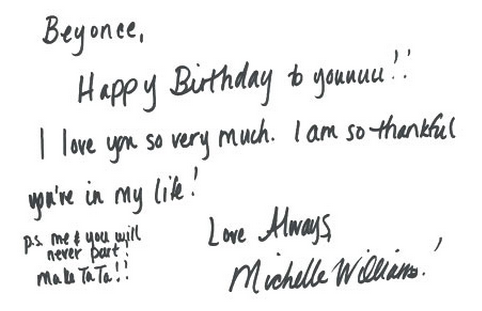 Beyonce,
Happy Birthday to youuuu!!
I love you so very much. I am so thankful
you're in my life!
p.s. me & you will
never part!
MakeTaTa!!
Love Always,
Michelle Williams!